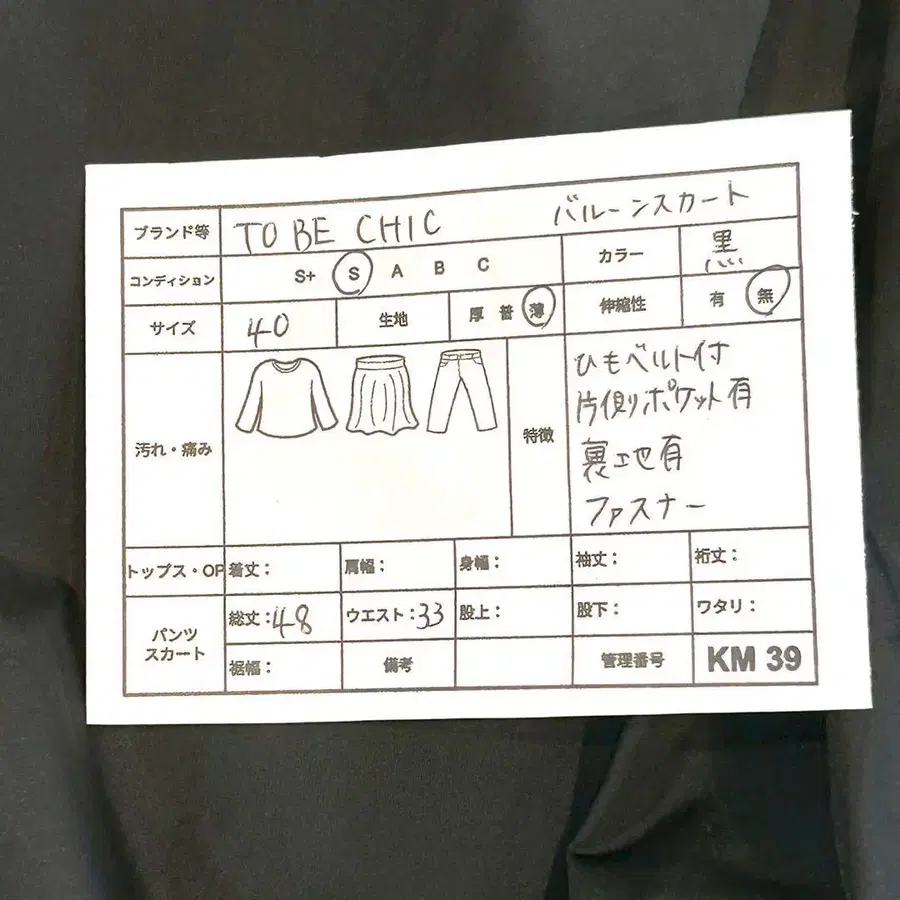 ブランド等 TO BE CHIC バルーンスカート
コンディション S+ S A B C カラー 黒
サイズ 40 生地 厚 普 薄 伸縮性 有 無
汚れ・痛み 特徴
ひもベルト付
片側ポケット有
裏地有
ファスナー
トップス・OP 着丈: 肩幅: 身幅: 袖丈: 裄丈:
パンツ
スカート
総丈:48 ウエスト:33 股上: 股下: ワタリ:
裾幅: 備考 管理番号 KM 39